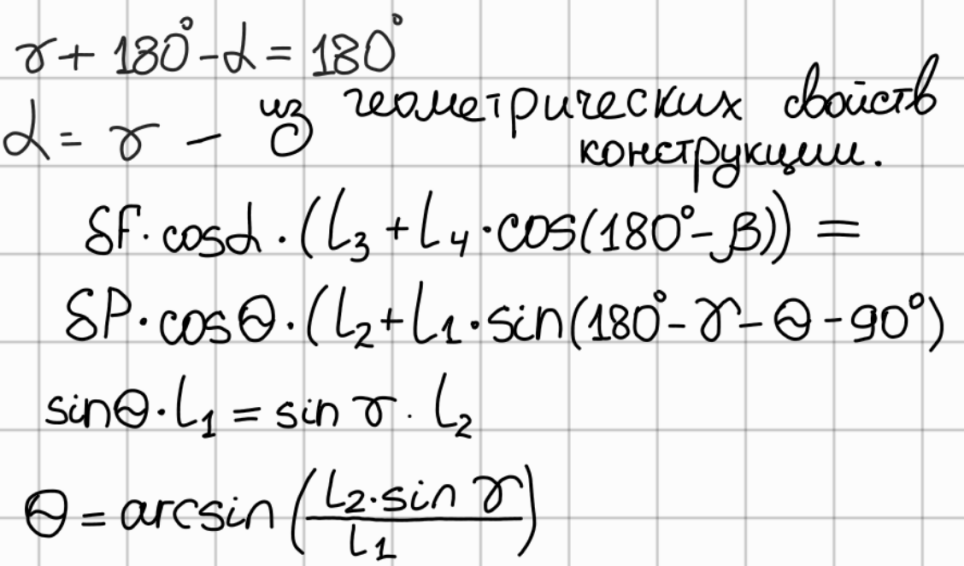 γ + 180° - α = 180°
α = γ - из геометрических свойств
конструкции.
δF · cosα · (L₃ + L₄ · cos(180° - β)) =
δP · cosΘ · (L₂ + L₁ · sin(180° - γ - Θ - 90°)
sinΘ · L₁ = sin γ · L₂
Θ = arcsin (L₂ · sin γ / L₁)